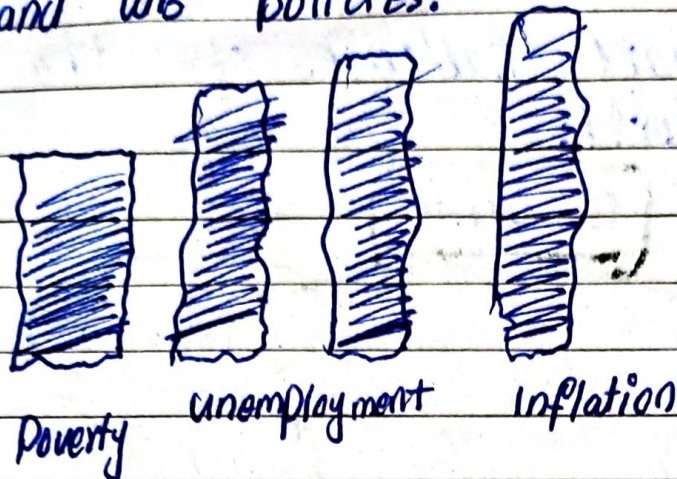 and WB policies.
Poverty
unemployment
Inflation